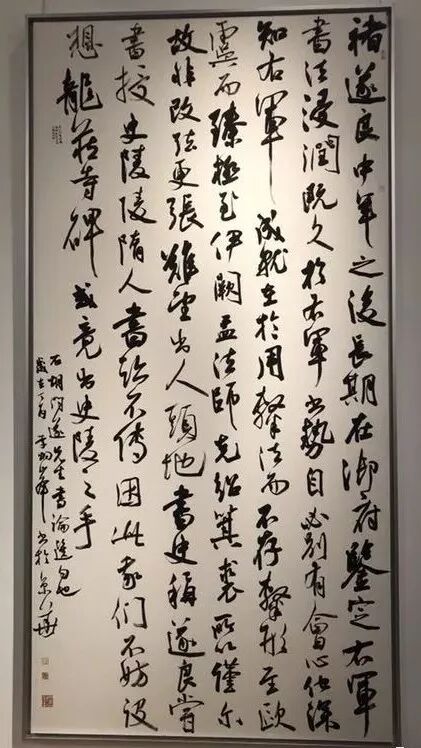 褚遂良中年之後長期在御府鑒定右軍
書法浸潤既久於右軍書勢自必別有會心他深
知右軍成就在於用法而不存形至歐
虞而臻極至伊闕孟法師克紹箕裘所以僅尔
故非改弦更張難望出人頭地書史稱遂良嘗
書授史陵陵隋人書跡不傳因此我们不妨设
想龍藏寺碑或竟出史陵之手
石胡问遂先生書論選句也
歲在丁酉李書於京華